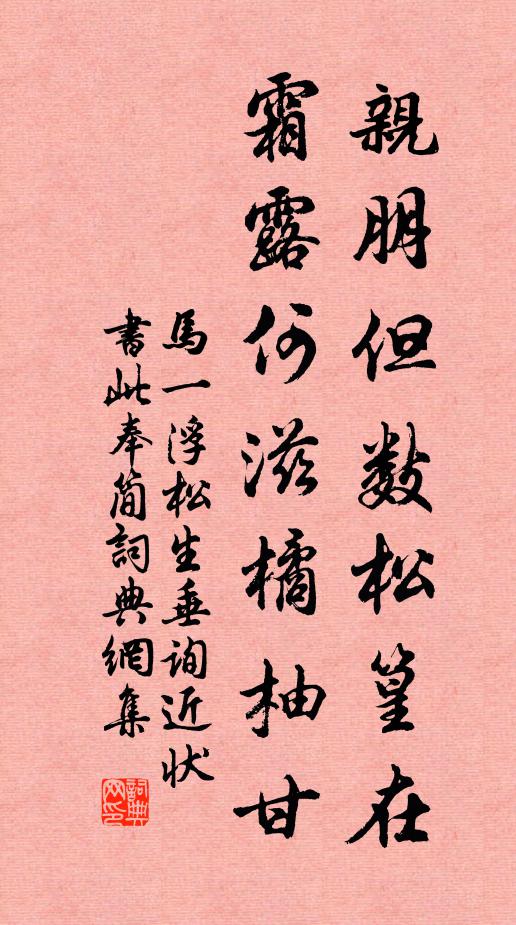 親朋但数松篁在
霜露何滋橘柚甘
馬一浮松生垂詢近状
書此奉簡詞典網集
詞典网印